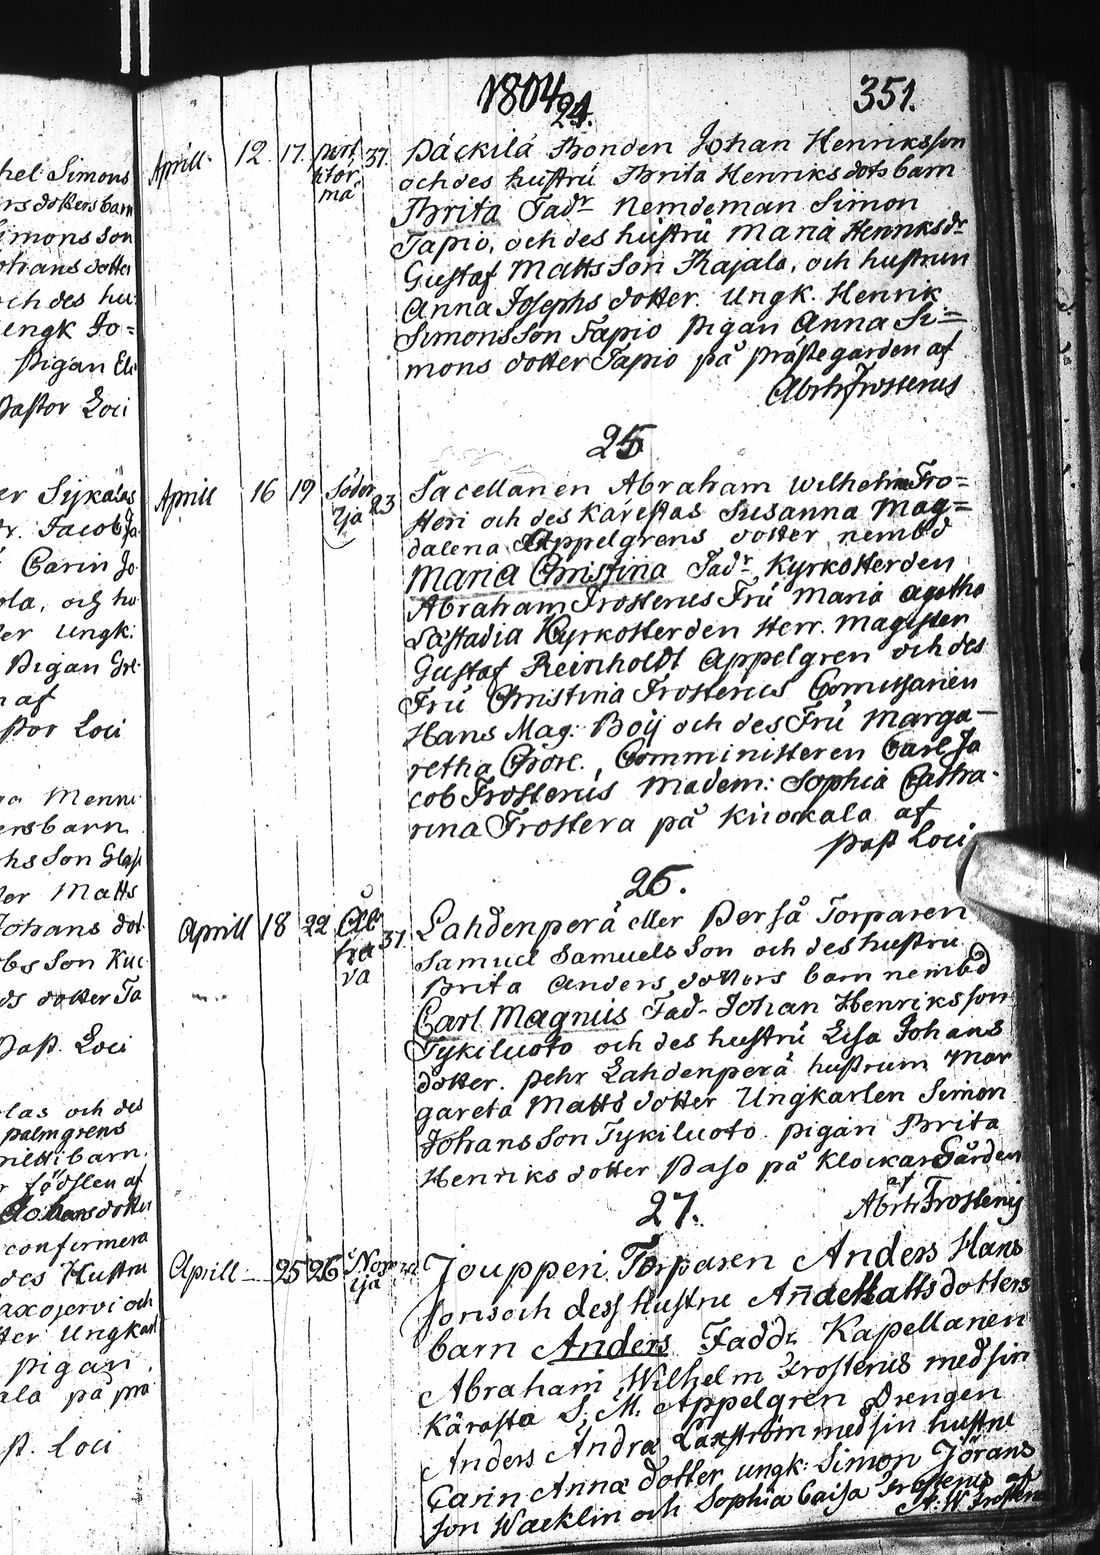 hel Simons
ers dotters barn
Simons son
ohans dotter
och des hu
ungk Jo=
pigan Eli
Pastor Loci
er Sykalas
r. Jacob Ja
Carin Jo
ola, och hu
er Ungk:
Pigan Gre
n af
stor Loci
Menni
ersbarn
hs Son
ter Matts
Johans dot
bs Son Kuc
ds dotter Ta
Past. Loci
las och des
palmgrens
barn.
r födslen af
Johansdotter
confirmera
des Hustru
axojervi och
ter Ungkarl
pigan
ala på prä
st. Loci
1804 351.
24.
Aprill 12 17 37 Päckilä Bonden Johan Henriksson
och des hustru Brita Henriks dots barn
Brita Fadr Nemdeman Simon
Tapio, och des hustru Maria Henriksdr
Gustaf Matts Son Rajala, och hustrun
Anna Josephs dotter. Ungk. Henrik
Simons Son Tapio pigan Anna Si=
mons dotter Tapio på prästegården af
Abrh Frosterus
25
Aprill 16 19 Söder 23 Sacellanen Abraham Wilhelm Fro=
ija steri och des Karestas Susanna Mag=
dalena Appelgrens dotter nembd
Maria Christina Fadr. Kyrkoherden
Abraham Frosterus Fru Maria Agatha
Lästadia Kyrkoherden Herr. Magisten
Gustaf Reinholdt Appelgren och des
Fru Christina Frosterus Comissarien
Hans Mag: Boij och des Fru Marga-
retha Chore. Comministeren Carl Ja
cob Frosterus Madem: Sophia Catha-
rina Frostera på Kuockala af
past Loci
26.
Aprill 18 22 31 Lahdenperä eller Perså Torparen
Samuel Samuels Son och des hustru
va Brita Anders dotters barn nembd
Carl Magnus Fad- Johan Henriksson
Tykiluoto och des hustru Lisa Johans
dotter. pehr Lahdenperä hustrun Mar
gareta Matts dotter Ungkarlen Simon
Johans Son Tykiluoto pigan Brita
Henriks dotter Paso på Klockaregården
af
Abrh Frosterus
27.
Aprill 25 26 Jouppen Torparen Anders Hans
ija son och dess hustru Anna Mattsdotters
barn Anders Faddr Kapellanen
Abraham Wilhelm Frosterus med sin
Kärasta S. M. Appelgren Drengen
Anders Andræ Laxström med sin hustru
Carin Annæ dotter ungk: Simon Jörans
son Wacklin och Sophia Caisa Frosterus af
A. W. Frosterus